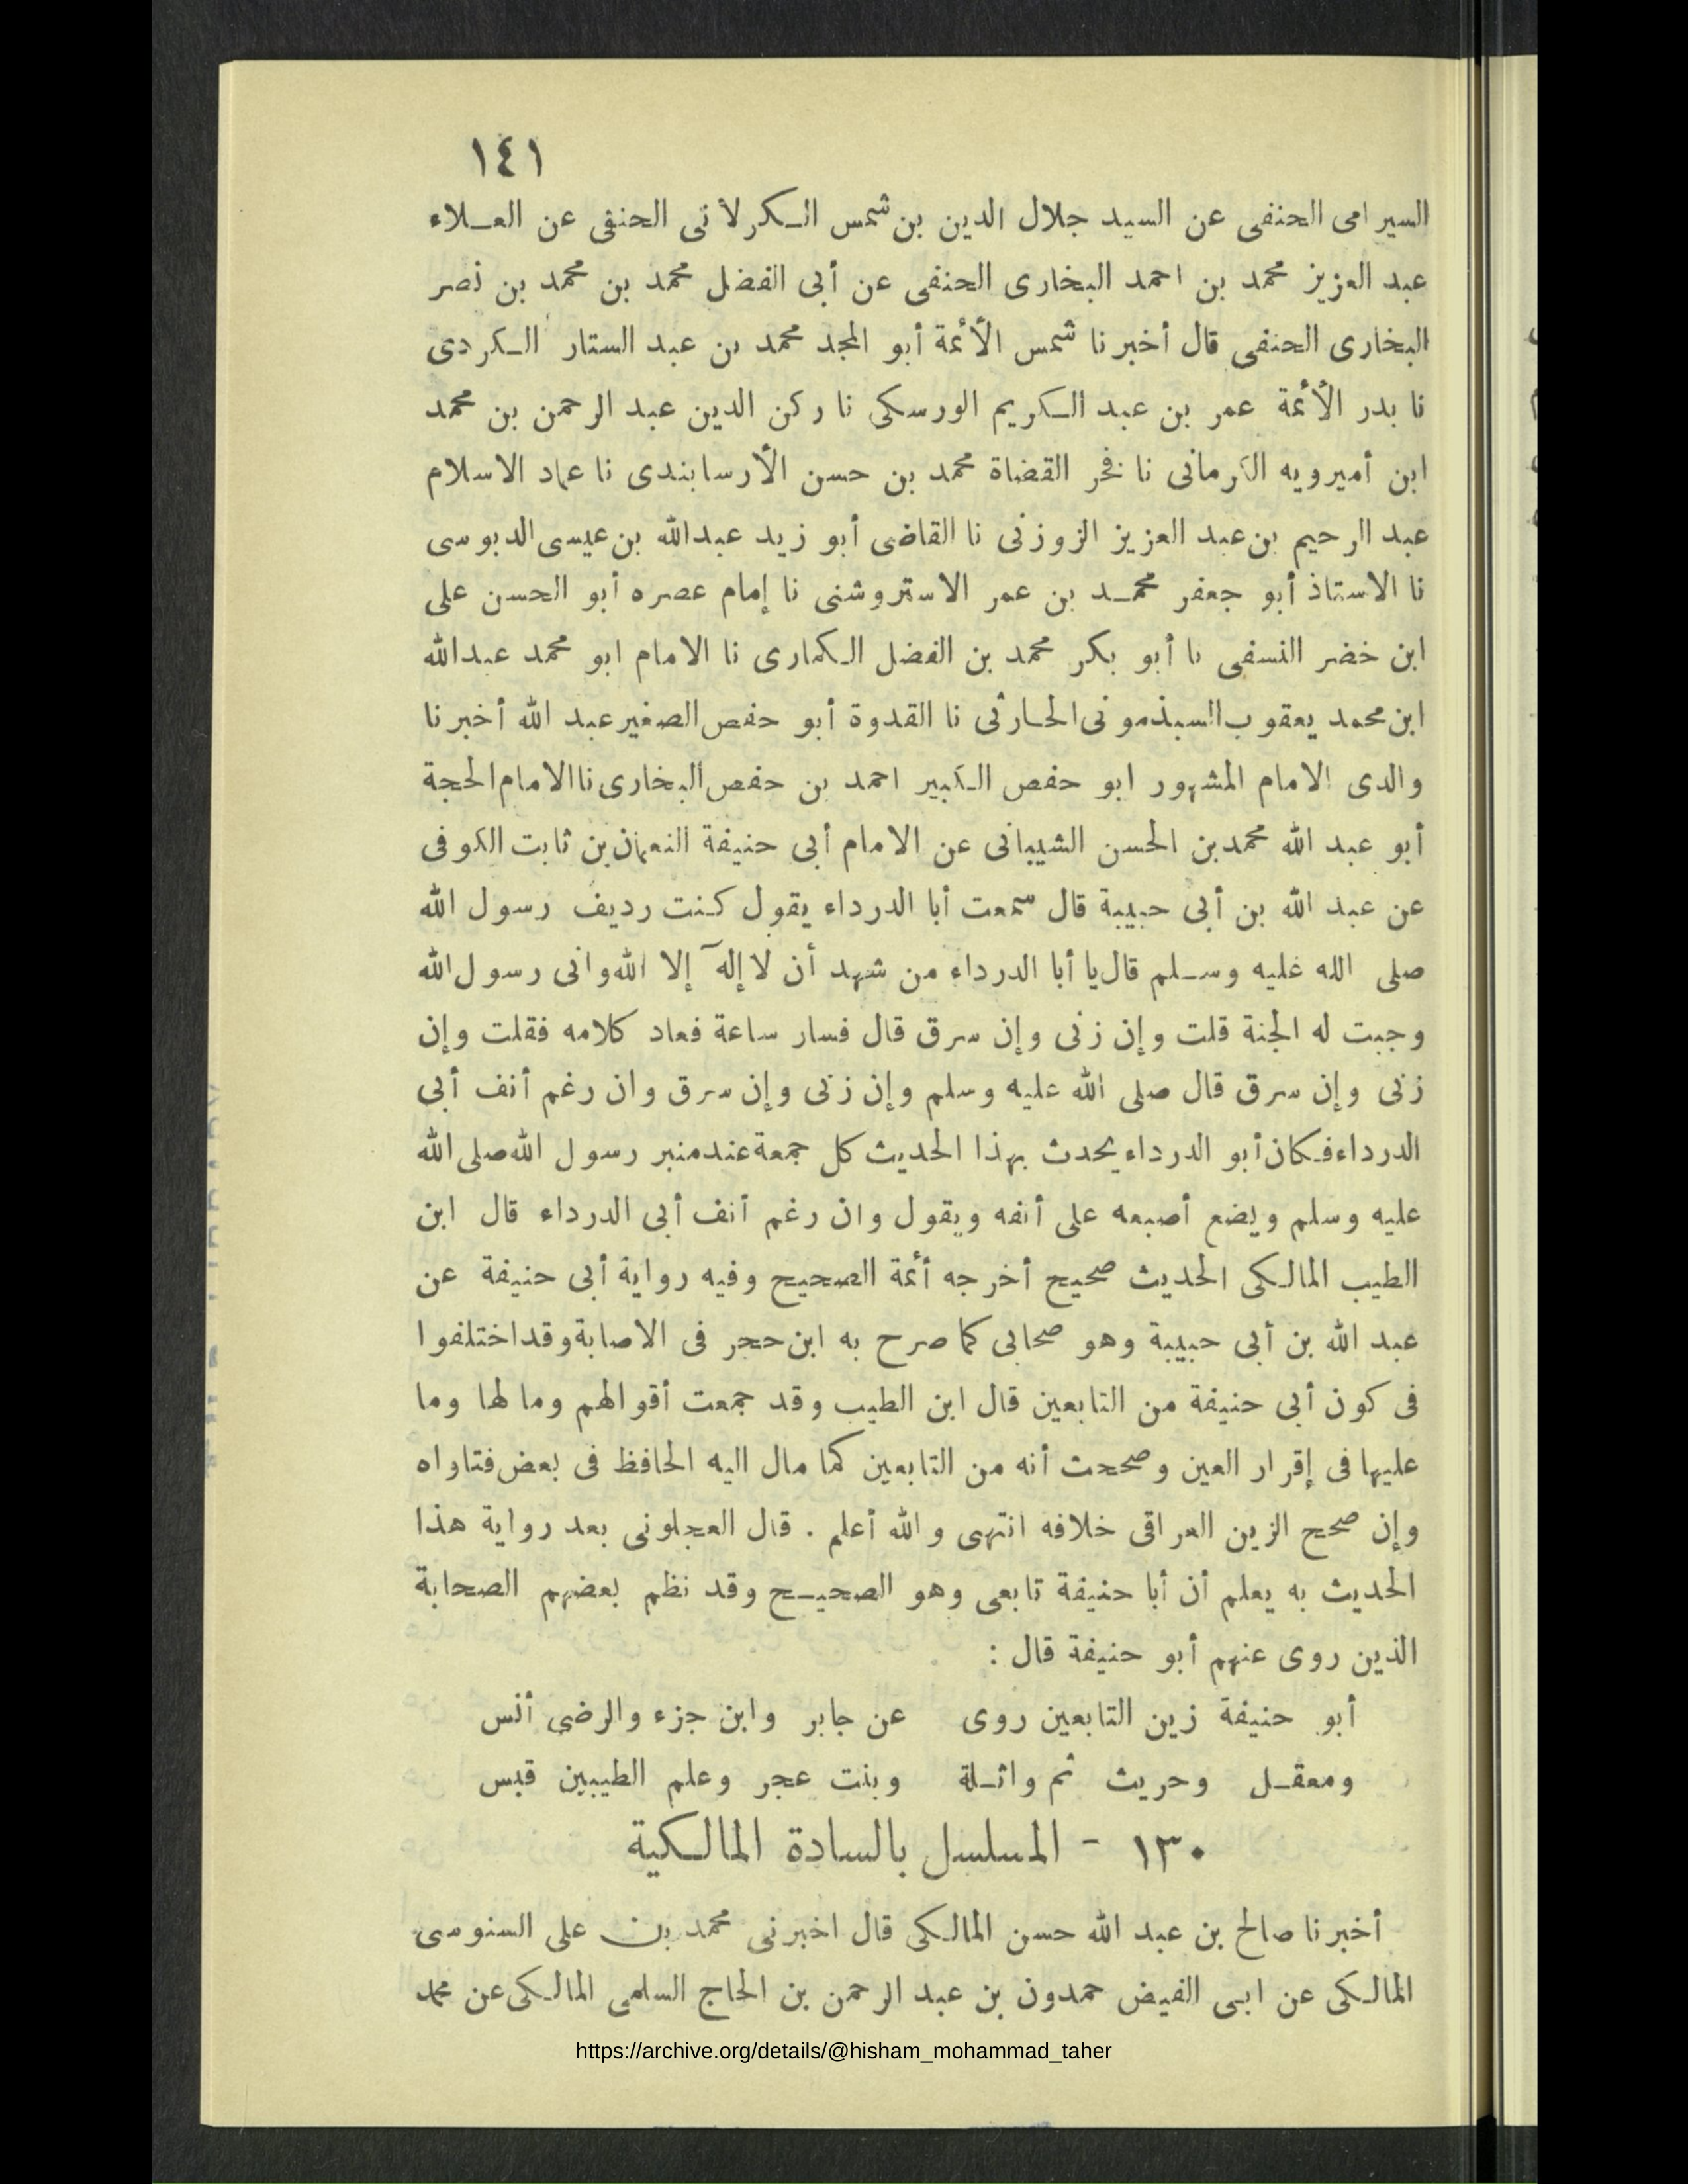 ١٤١
السيرامى الحنفى عن السيد جلال الدين بن شمس الكرلأنى الحنفى عن العلاء
عبد العزيز محمد بن احمد البخارى الحنفى عن أبى الفضل محمد بن محمد بن نصر
البخارى الحنفى قال أخبرنا شمس الأئمة أبو المجد محمد بن عبد الستار الكردى
نا بدر الأئمة عمر بن عبد الكريم الورسكى نا ركن الدين عبد الرحمن بن محمد
ابن أميرويه الكرمانى نا فخر القضاة محمد بن حسن الأرسابندى نا عماد الاسلام
عبد الرحيم بن عبد العزيز الزوزنى نا القاضى أبو زيد عبدالله بن عيسى الدبوسى
نا الاستاذ أبو جعفر محمد بن عمر الاستروشنى نا إمام عصره أبو الحسن على
ابن خضر النسفى نا أبو بكر محمد بن الفضل الكمارى نا الامام ابو محمد عبدالله
ابن محمد يعقوب السبذمونى الحارثى نا القدوة أبو حفص الصغير عبد الله أخبرنا
والدى الامام المشهور ابو حفص الكبير احمد بن حفص البخارى نا الامام الحجة
أبو عبد الله محمد بن الحسن الشيبانى عن الامام أبى حنيفة النعمان بن ثابت الكوفى
عن عبد الله بن أبى حبيبة قال سمعت أبا الدرداء يقول كنت رديف رسول الله
صلى الله عليه وسلم قال يا أبا الدرداء من شهد أن لا إله إلا الله وانى رسول الله
وجبت له الجنة قلت وإن زنى وإن سرق قال فسار ساعة فعاد كلامه فقلت وإن
زنى وإن سرق قال صلى الله عليه وسلم وإن زنى وإن سرق وان رغم أنف أبى
الدرداء فكان أبو الدرداء يحدث بهذا الحديث كل جمعة عند منبر رسول الله صلى الله
عليه وسلم ويضع أصبعه على أنفه ويقول وان رغم أنف أبى الدرداء قال ابن
الطيب المالكى الحديث صحيح أخرجه أئمة الصحيح وفيه رواية أبى حنيفة عن
عبد الله بن أبى حبيبة وهو صحابى كما صرح به ابن حجر فى الاصابة وقد اختلفوا
فى كون أبى حنيفة من التابعين قال ابن الطيب وقد جمعت أقوالهم وما لها وما
عليها فى إقرار العين وصححت أنه من التابعين كما مال اليه الحافظ فى بعض فتاواه
وإن صحح الزين العراقى خلافه انتهى والله أعلم . قال العجلونى بعد رواية هذا
الحديث به يعلم أن أبا حنيفة تابعى وهو الصحيح وقد نظم بعضهم الصحابة
الذين روى عنهم أبو حنيفة قال :
أبو حنيفة زين التابعين روى عن جابر وابن جزء والرضى أنس
ومعقل وحريث ثم واثلة وبنت عجر وعلم الطيبين قبس
١٣٠ - المسلسل بالسادة المالكية
أخبرنا صالح بن عبد الله حسن المالكى قال اخبرنى محمد بن على السنوسى
المالكى عن ابى الفيض حمدون بن عبد الرحمن بن الحاج السلمى المالكى عن محمد
https://archive.org/details/@hisham_mohammad_taher